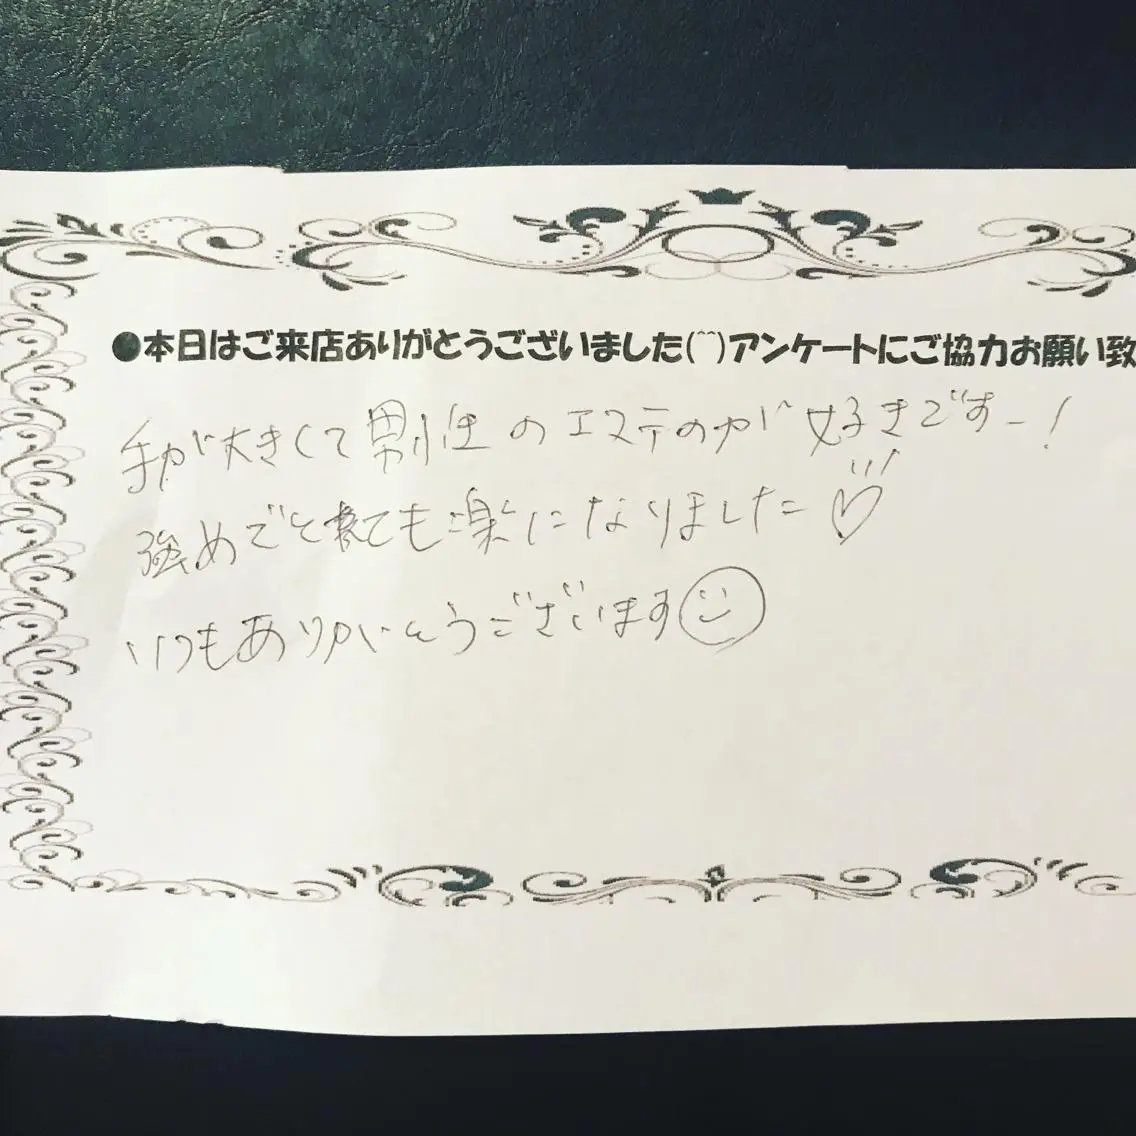 ●本日はご来店ありがとうございました(^^)アンケートにご協力お願い致
手が大きくて男性のエステのが好きですー!
強めでとても楽になりました♡
いつもありがとうございます☺